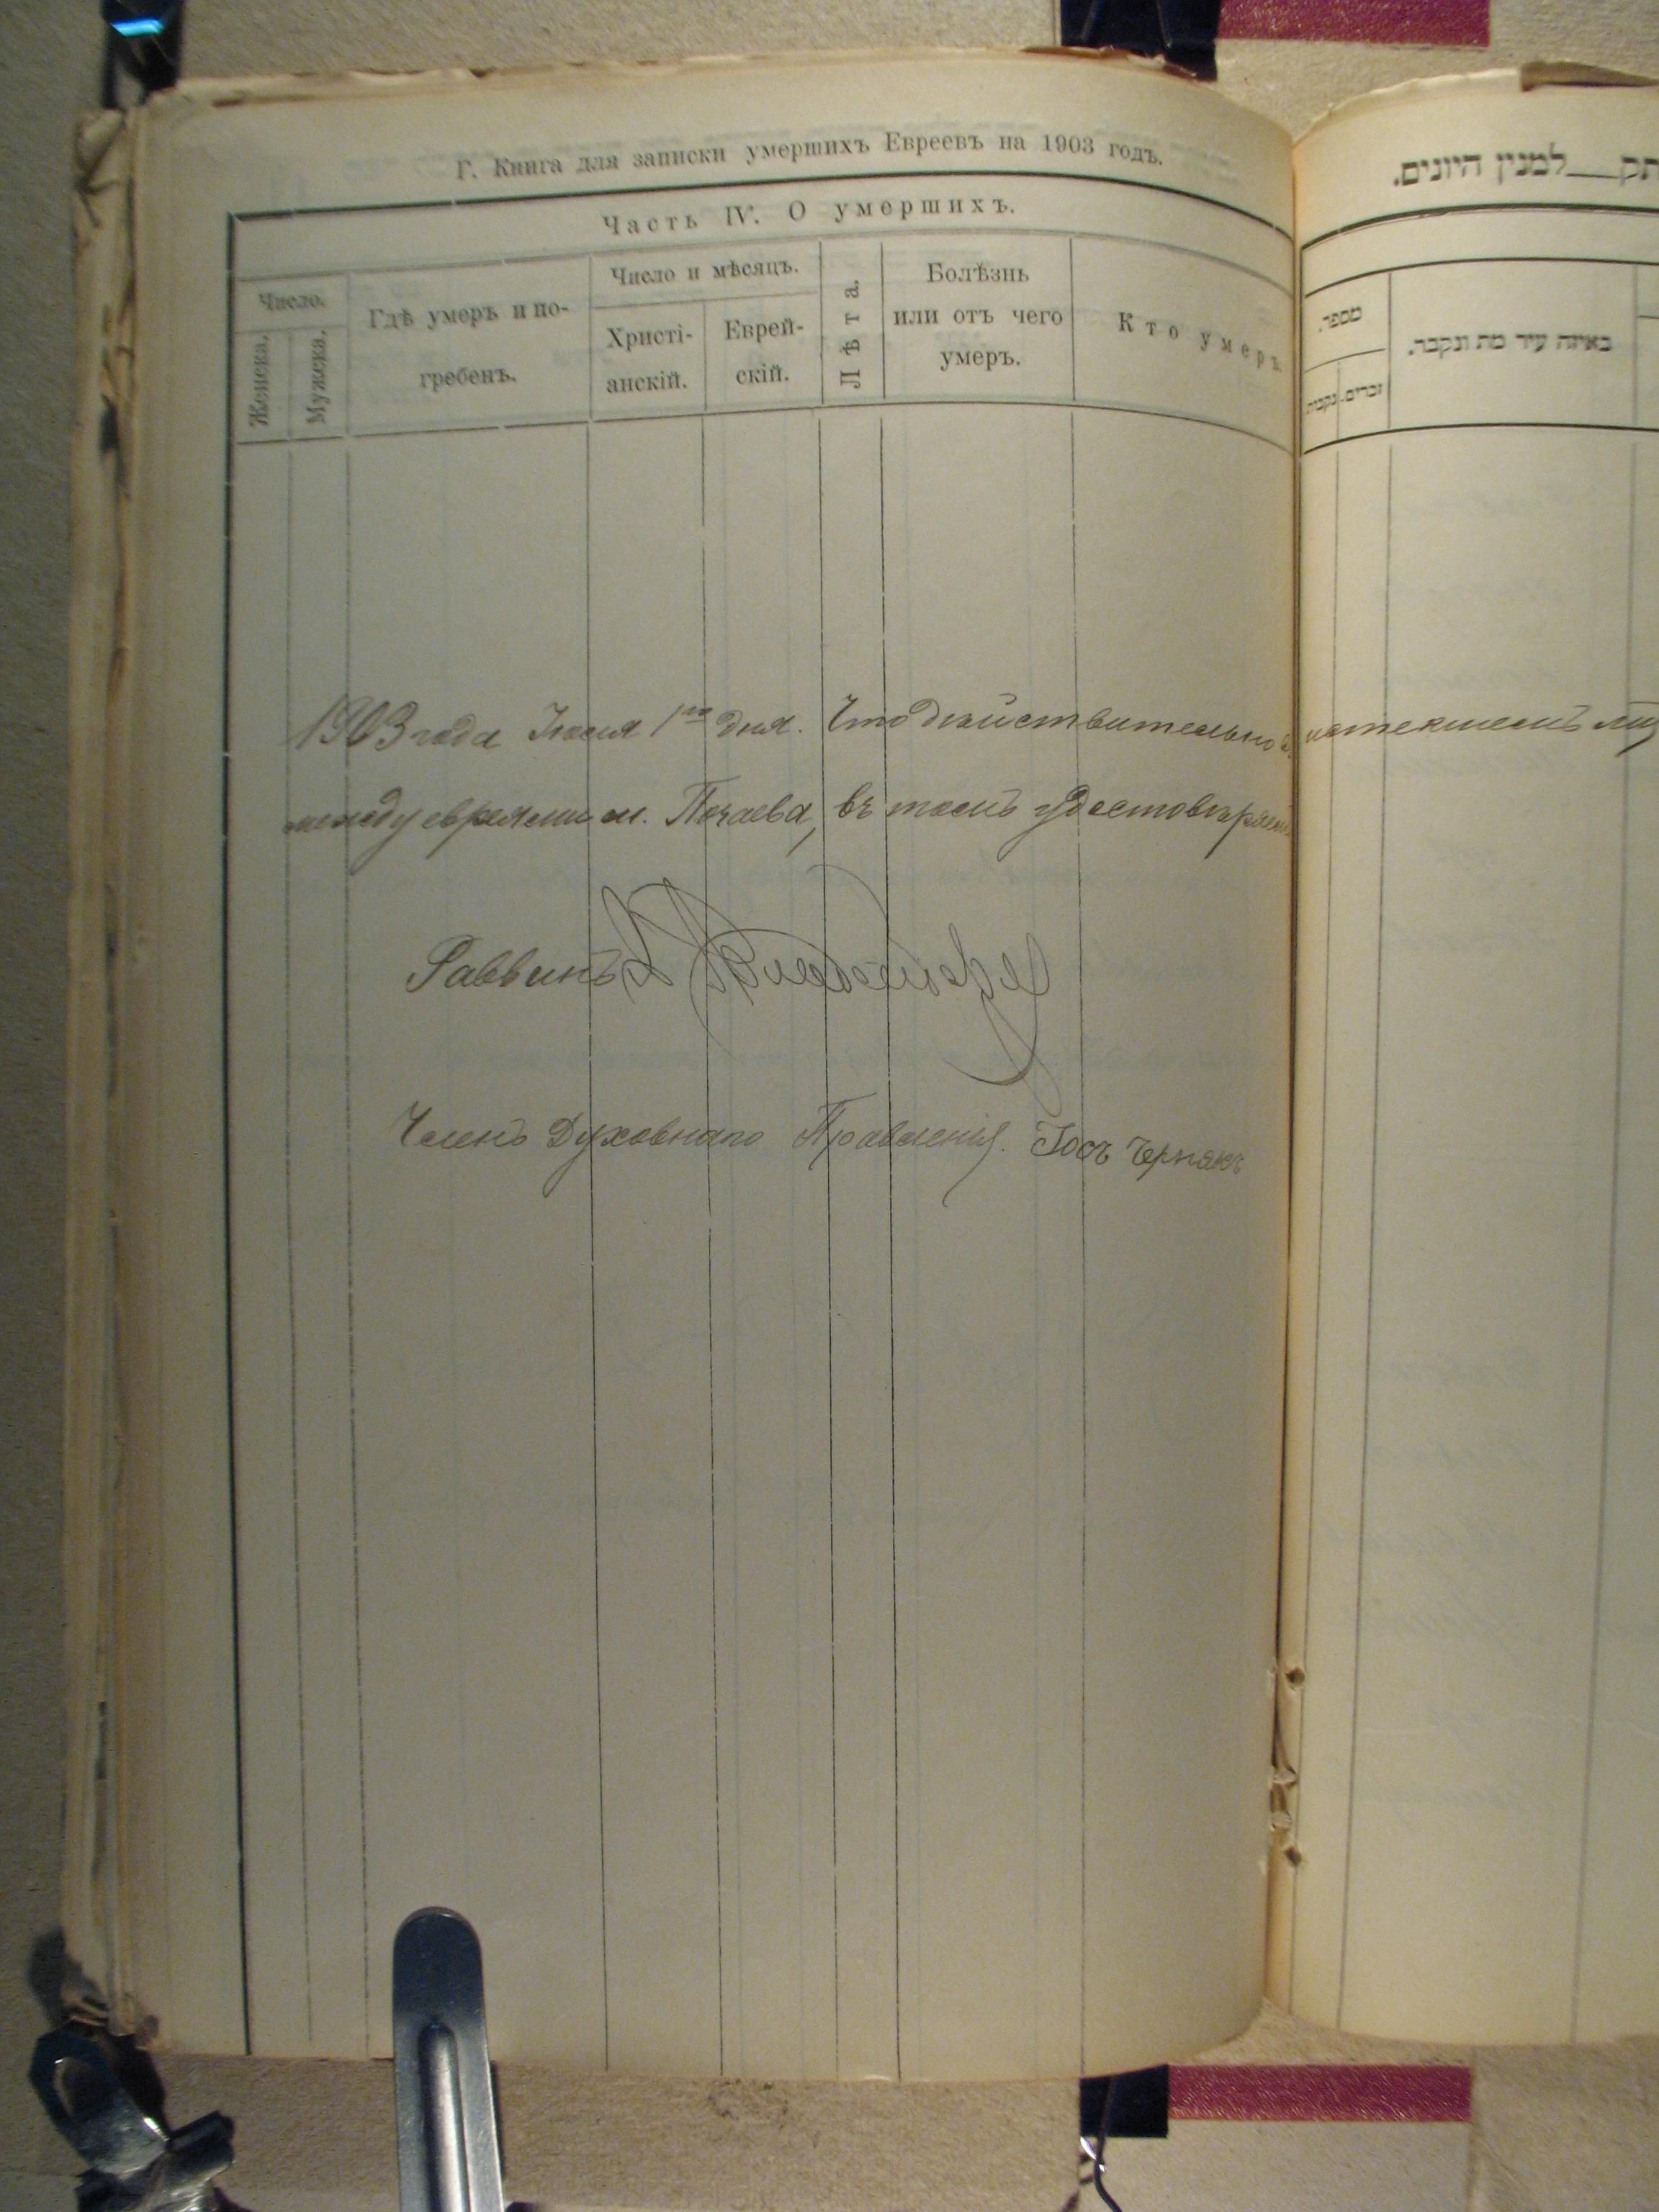 Г. Книга для записки умершихъ Евреевъ на 1903 годъ.
Часть IV. О умершихъ.
Число.
Женска.
Мужска.
Гдѣ умеръ и по-
гребенъ.
Число и мѣсяцъ.
Христі-
анскій.
Еврей-
скій.
Лѣта.
Болѣзнь
или отъ чего
умеръ.
Кто умеръ.
1903 года 1го дня. Что действительно в истекшемъ
между евреями м. Почаева, въ томъ удостовѣряемъ
Раввинъ
Членъ Духовнаго Правленія. Іосъ Чернякъ
תק___למנין היונים.
מספר.
זכרים.
נקבות.
באיזה עיר מת ונקבר.